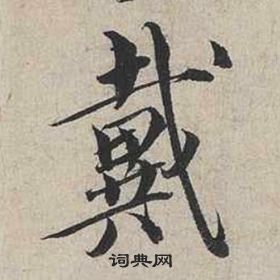 戴
词典网